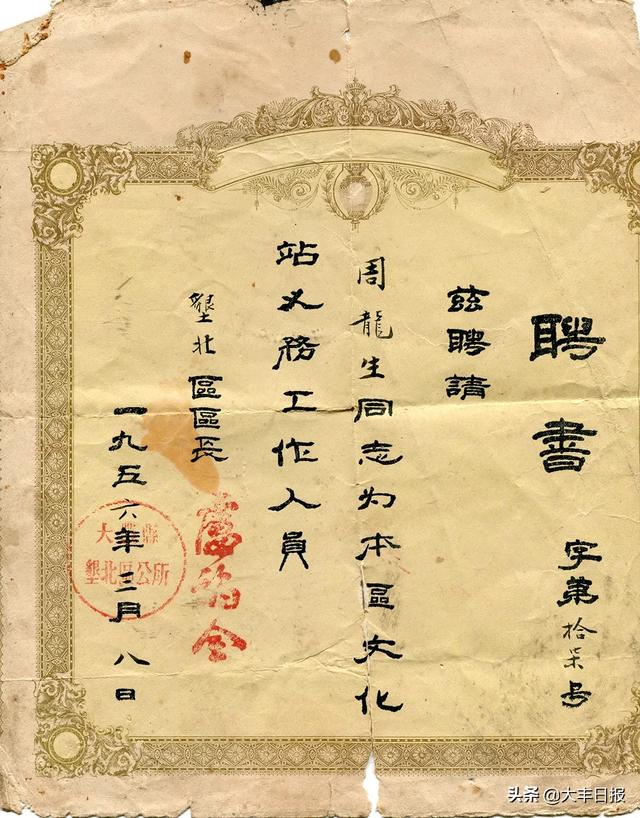 聘書
字第拾柒号
茲聘請
周龍生同志为本區文化
站义務工作人員
墾北區區長
一九五六年二月八日
大豐縣
墾北區公所
头条 @大丰日报